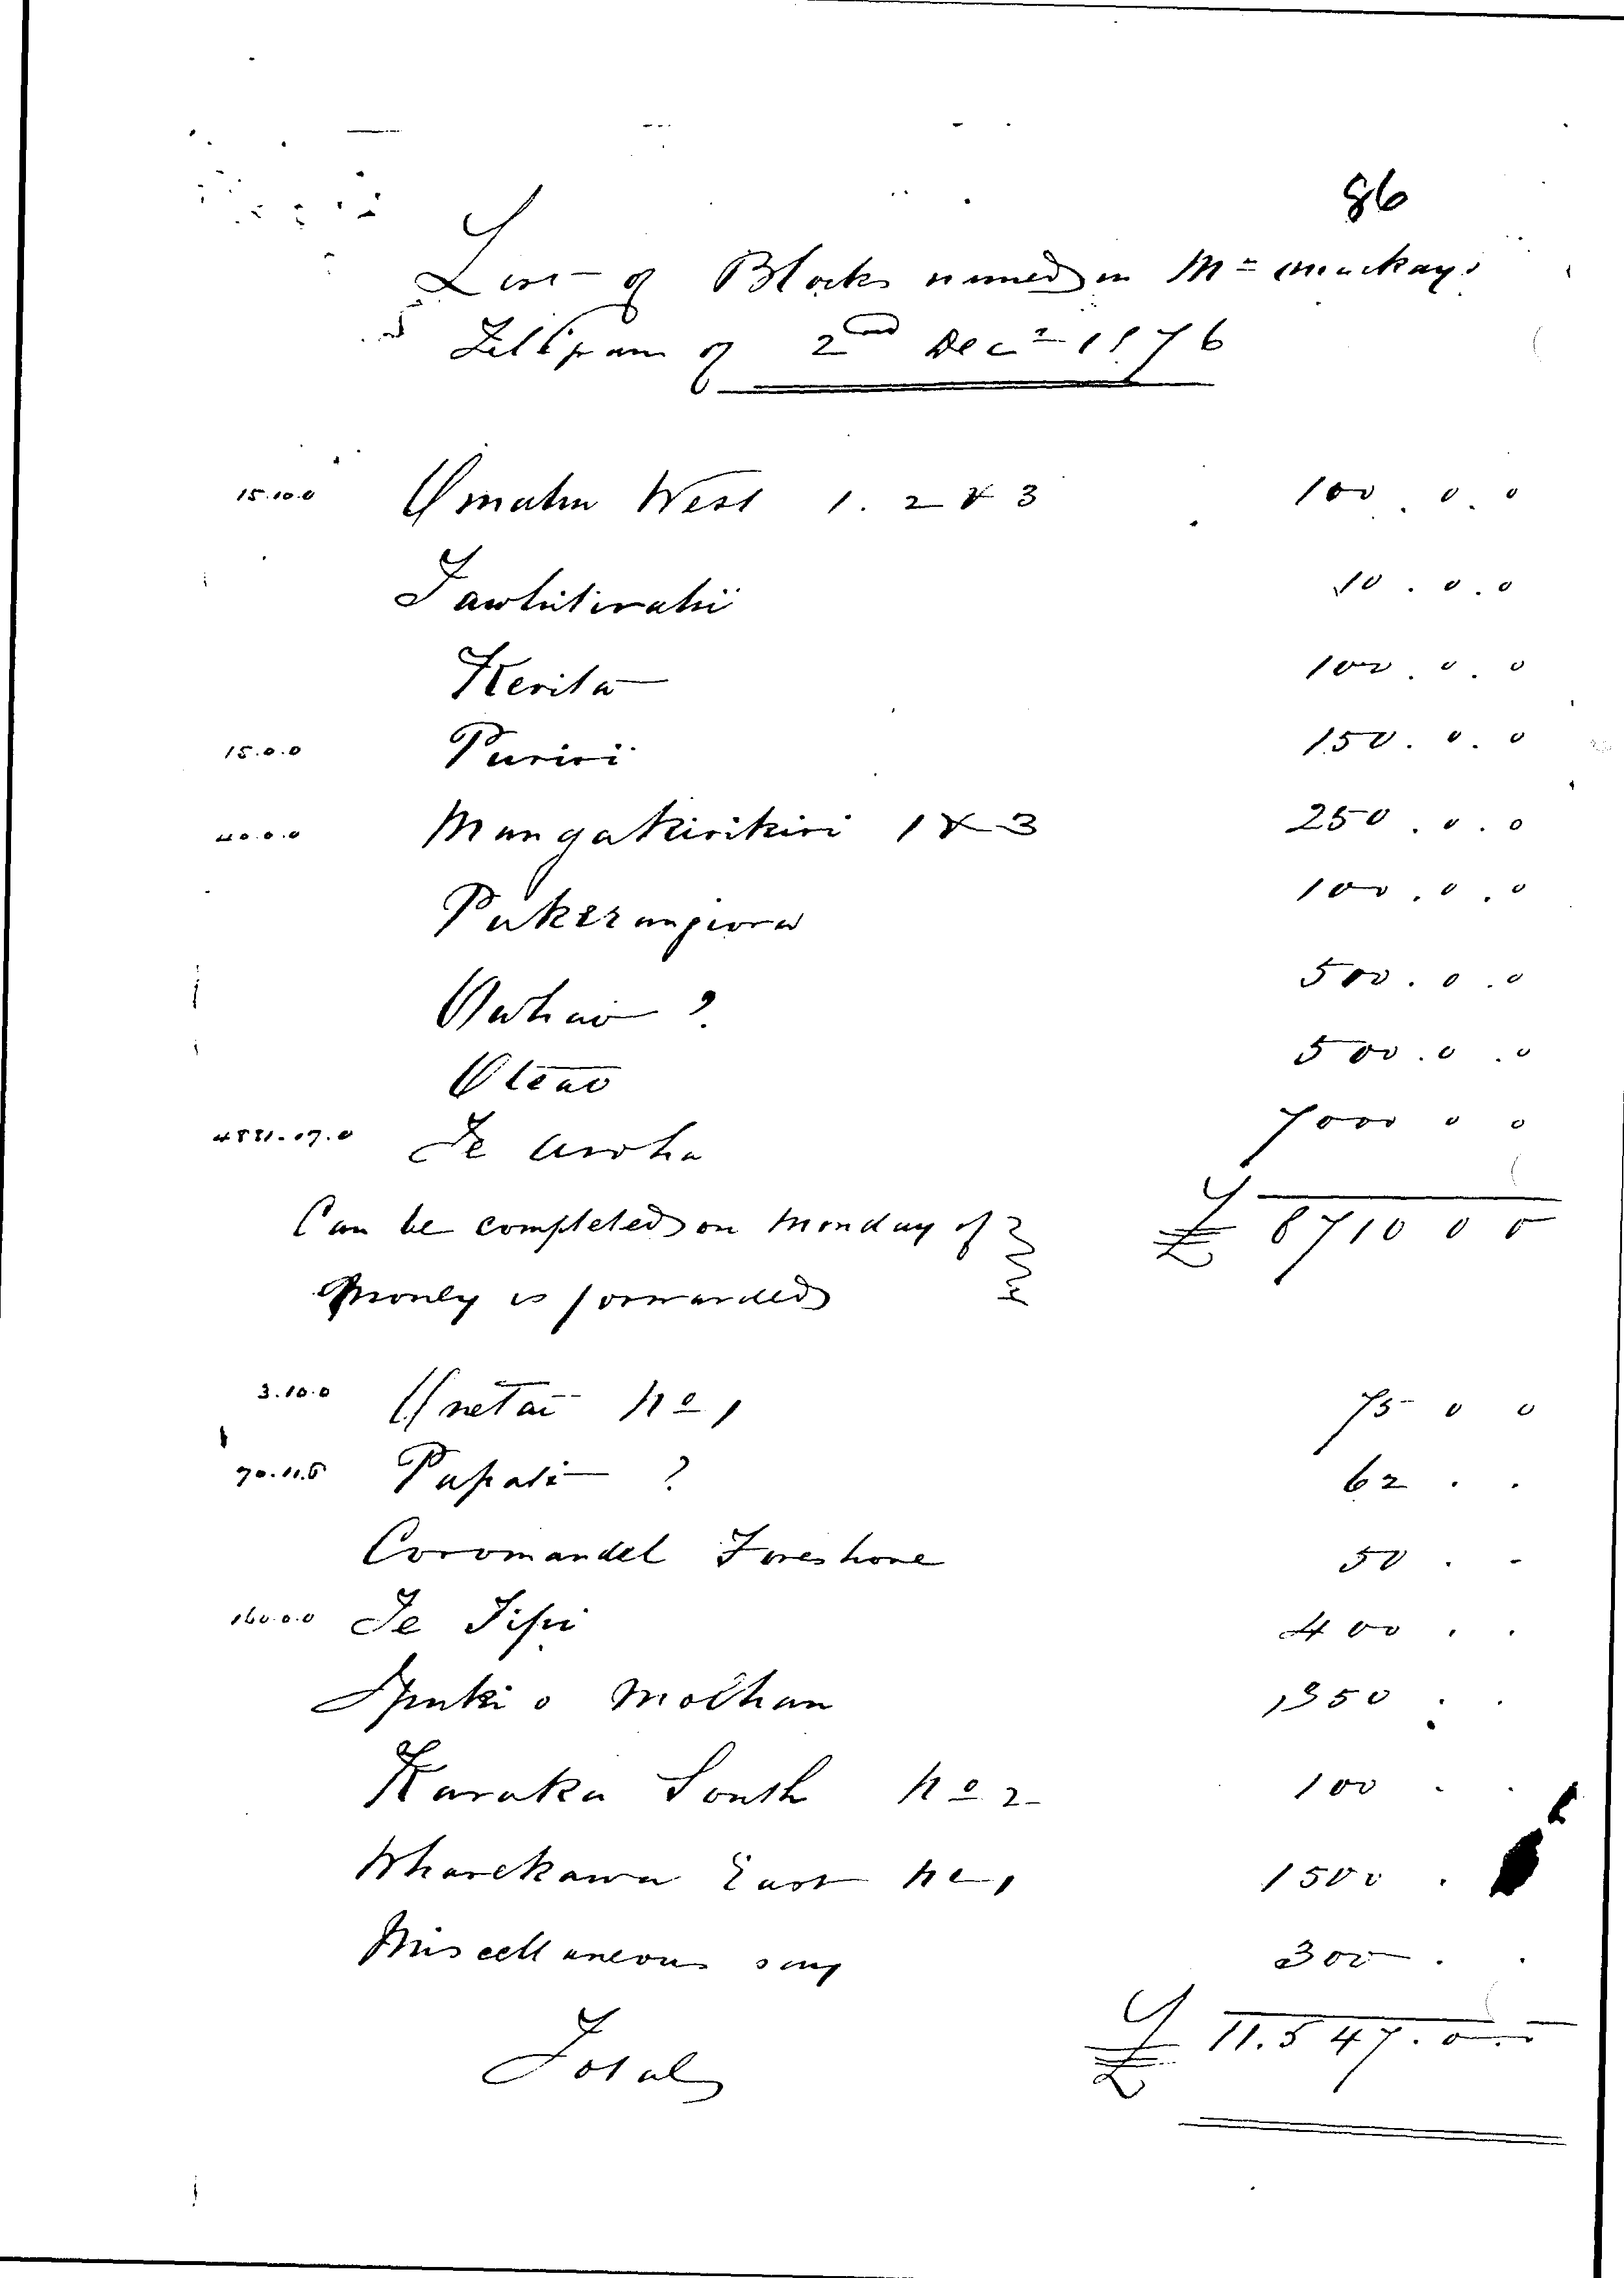 86
List of Blocks named in Mr Mackays
Telegram of 2nd Decr 1876
15.10.0 Omahu West 1. 2 & 3 100.0.0
Tawhitirahi 10.0.0
Kerita 100.0.0
15.0.0 Puriri 150.0.0
40.0.0 Mangakirikiri 1 & 3 250.0.0
Pukerangiora 100.0.0
Owhao ? 500.0.0
Oteao 500.0.0
4881.17.0 Te Aroha 7000 0 0
Can be completed on Monday if £ 8710 0 0
Money is forwarded
3.10.0 Onetai No 1 75 0 0
70.11.6 Papati ? 62 . .
Coromandel Foreshore 50 . -
160.0.0 Te Tipi 400 . .
o Moehau 350 . .
Karaka South No 2 100 . .
Wharekawa East No 1 1500 .
Miscellaneous say 300 . .
Total £ 11.547.0.0